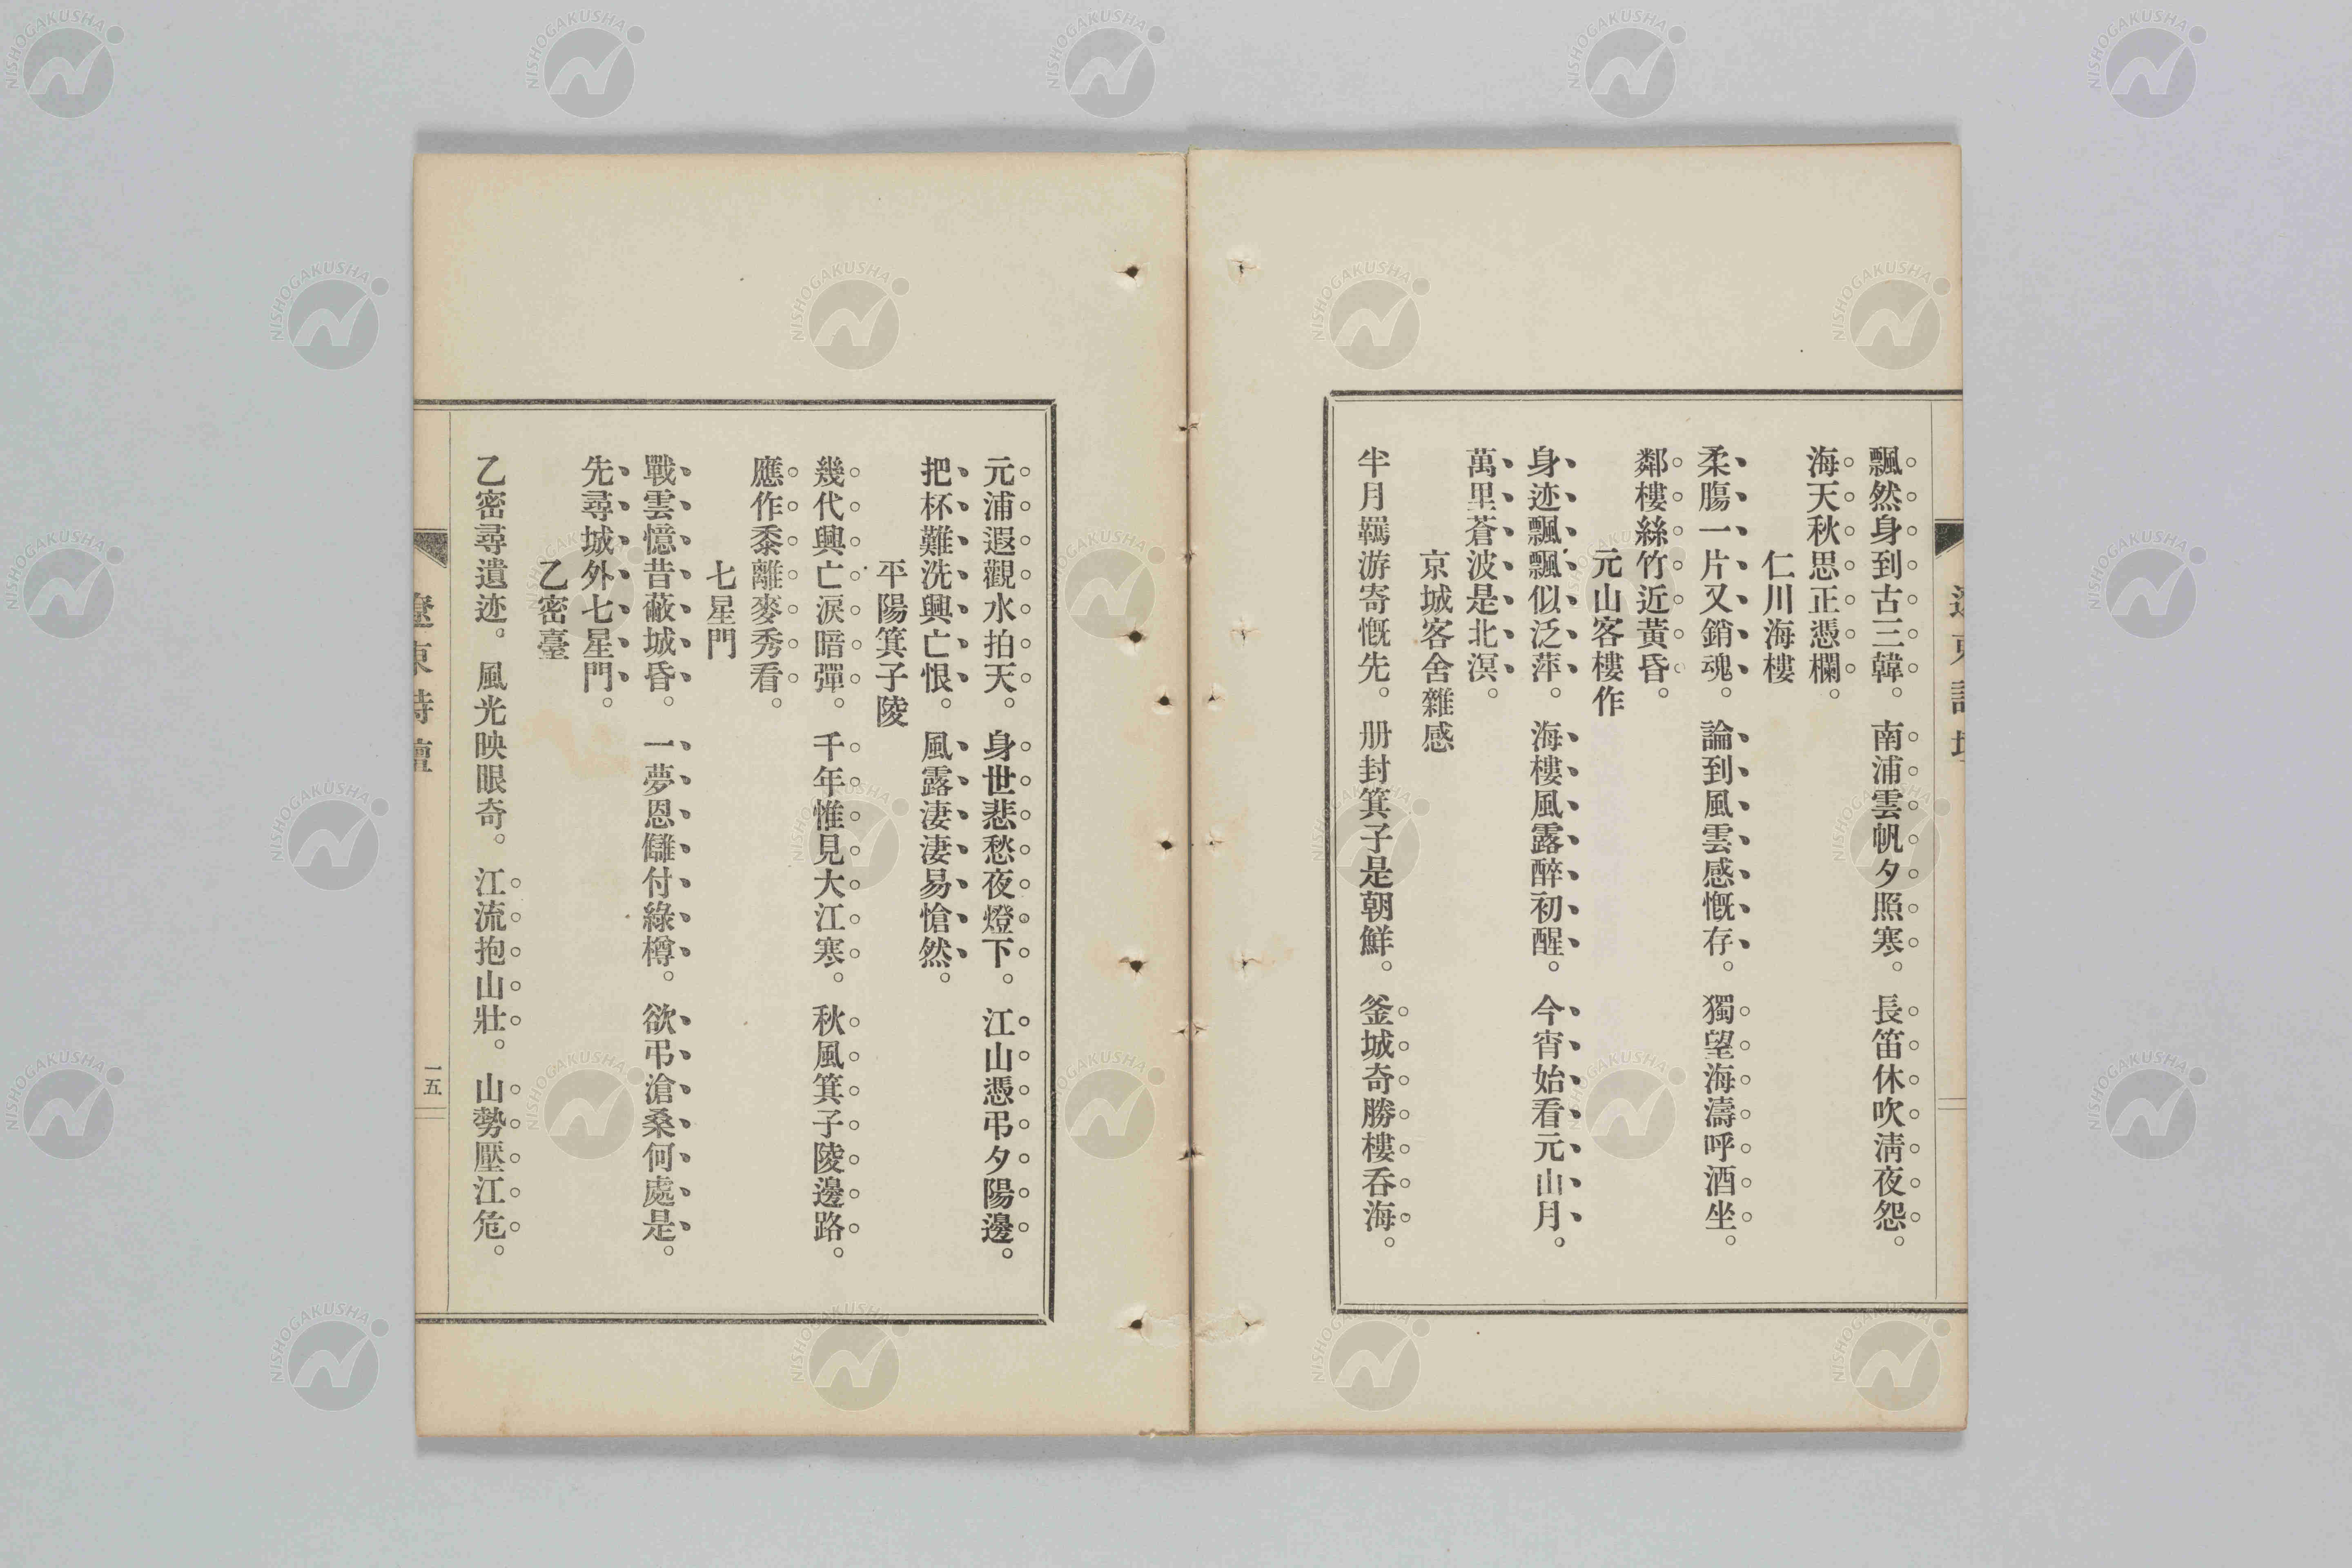 飄然身到古三韓。南浦雲帆夕照寒。長笛休吹淸夜怨。
海天秋思正憑欄。
仁川海樓
柔膓一片又銷魂。論到風雲感慨存。獨望海濤呼酒坐。
鄰樓絲竹近黃昏。
元山客樓作
身迹飄飄似泛萍。海樓風露醉初醒。今宵始看元山月。
萬里蒼波是北溟。
京城客舍雜感
半月羈游寄慨先。册封箕子是朝鮮。釜城奇勝樓吞海。
元浦遐觀水拍天。身世悲愁夜燈下。江山憑弔夕陽邊。
把杯難洗興亡恨。風露淒淒易愴然。
平陽箕子陵
幾代興亡淚暗彈。千年惟見大江寒。秋風箕子陵邊路。
應作黍離麥秀看。
七星門
戰雲憶昔蔽城昏。一夢恩讎付綠樽。欲弔滄桑何處是。
先尋城外七星門。
乙密臺
乙密尋遺迹。風光映眼奇。江流抱山壯。山勢壓江危。
遼東詩壇
一五
NISHOGAKUSHA